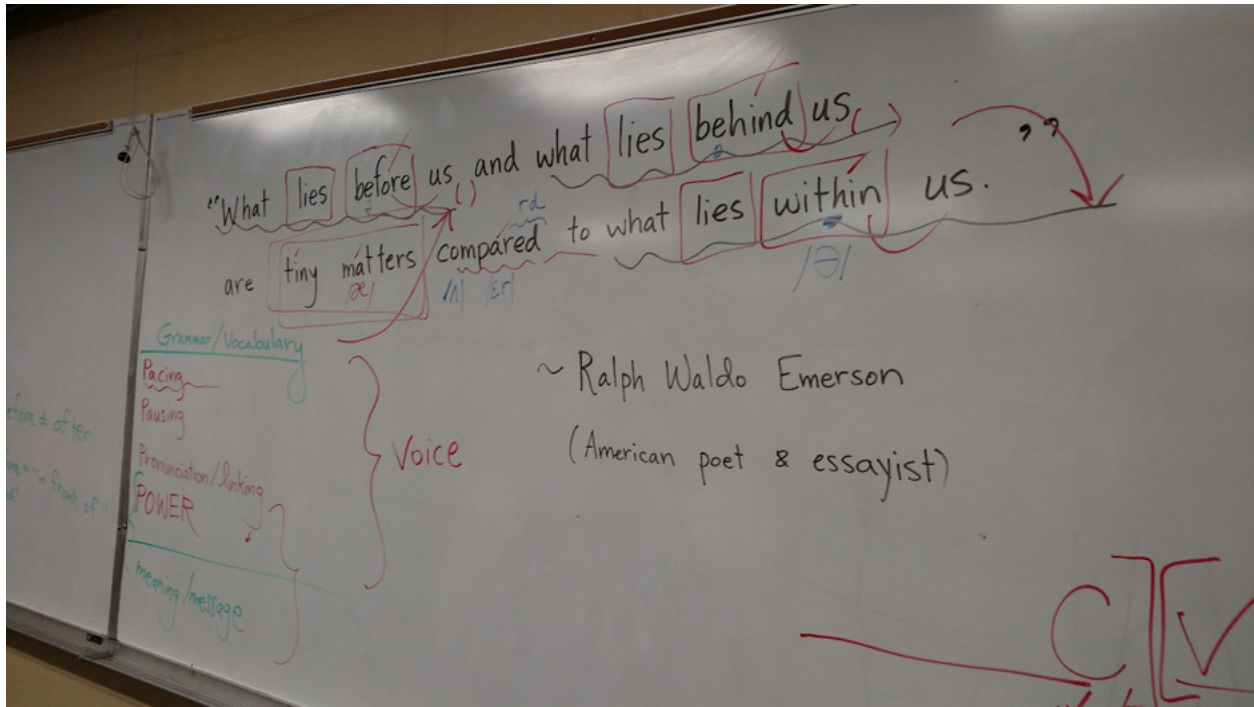 "What lies before us and what lies behind us,
are tiny matters compared to what lies within us."
rd
/æ/ /ʌ/ /ɛr/ /Ə/
~ Ralph Waldo Emerson
(American poet & essayist)
Grammar/Vocabulary
Pacing
Pausing
Pronunciation/linking
POWER
meaning/message
Voice
before ≠ after
"in front of"
C